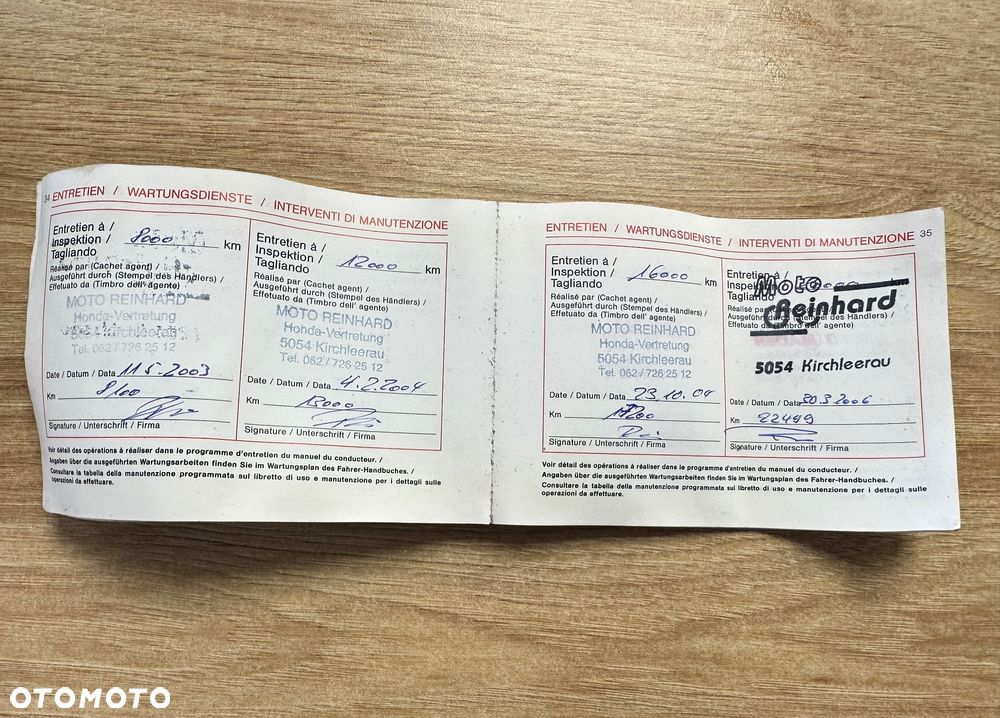 34 ENTRETIEN / WARTUNGSDIENSTE / INTERVENTI DI MANUTENZIONE
Entretien à /
Inspektion / 8000 km
Tagliando
Réalisé par (Cachet agent) /
Ausgeführt durch (Stempel des Händlers) /
Effetuato da (Timbro dell' agente)
MOTO REINHARD
Honda-Vertretung
5054 Kirchleerau
Tel. 062/726 25 12
Date / Datum / Data 11.5.2003
Km 8100
Signature / Unterschrift / Firma
Entretien à /
Inspektion / 12000 km
Tagliando
Réalisé par (Cachet agent) /
Ausgeführt durch (Stempel des Händlers) /
Effetuato da (Timbro dell' agente)
MOTO REINHARD
Honda-Vertretung
5054 Kirchleerau
Tel. 062/726 25 12
Date / Datum / Data 4.2.2004
Km 13000
Signature / Unterschrift / Firma
Voir détail des opérations à réaliser dans le programme d'entretien du manuel du conducteur. /
Angaben über die ausgeführten Wartungsarbeiten finden Sie im Wartungsplan des Fahrer-Handbuches. /
Consultare la tabella della manutenzione programmata sul libretto di uso e manutenzione per i dettagli sulle
operazioni da effettuare.
ENTRETIEN / WARTUNGSDIENSTE / INTERVENTI DI MANUTENZIONE 35
Entretien à /
Inspektion / 16000 km
Tagliando
Réalisé par (Cachet agent) /
Ausgeführt durch (Stempel des Händlers) /
Effetuato da (Timbro dell' agente)
MOTO REINHARD
Honda-Vertretung
5054 Kirchleerau
Tel. 062/726 25 12
Date / Datum / Data 23.10.04
Km
Signature / Unterschrift / Firma
Entretien à /
Tagliando
Moto
Reinhard
5054 Kirchleerau
Date / Datum / Data 30.3.2006
Km 22499
Signature / Unterschrift / Firma
Voir détail des opérations à réaliser dans le programme d'entretien du manuel du conducteur. /
Angaben über die ausgeführten Wartungsarbeiten finden Sie im Wartungsplan des Fahrer-Handbuches. /
Consultare la tabella della manutenzione programmata sul libretto di uso e manutenzione per i dettagli sulle
operazioni da effettuare.
OTOMOTO